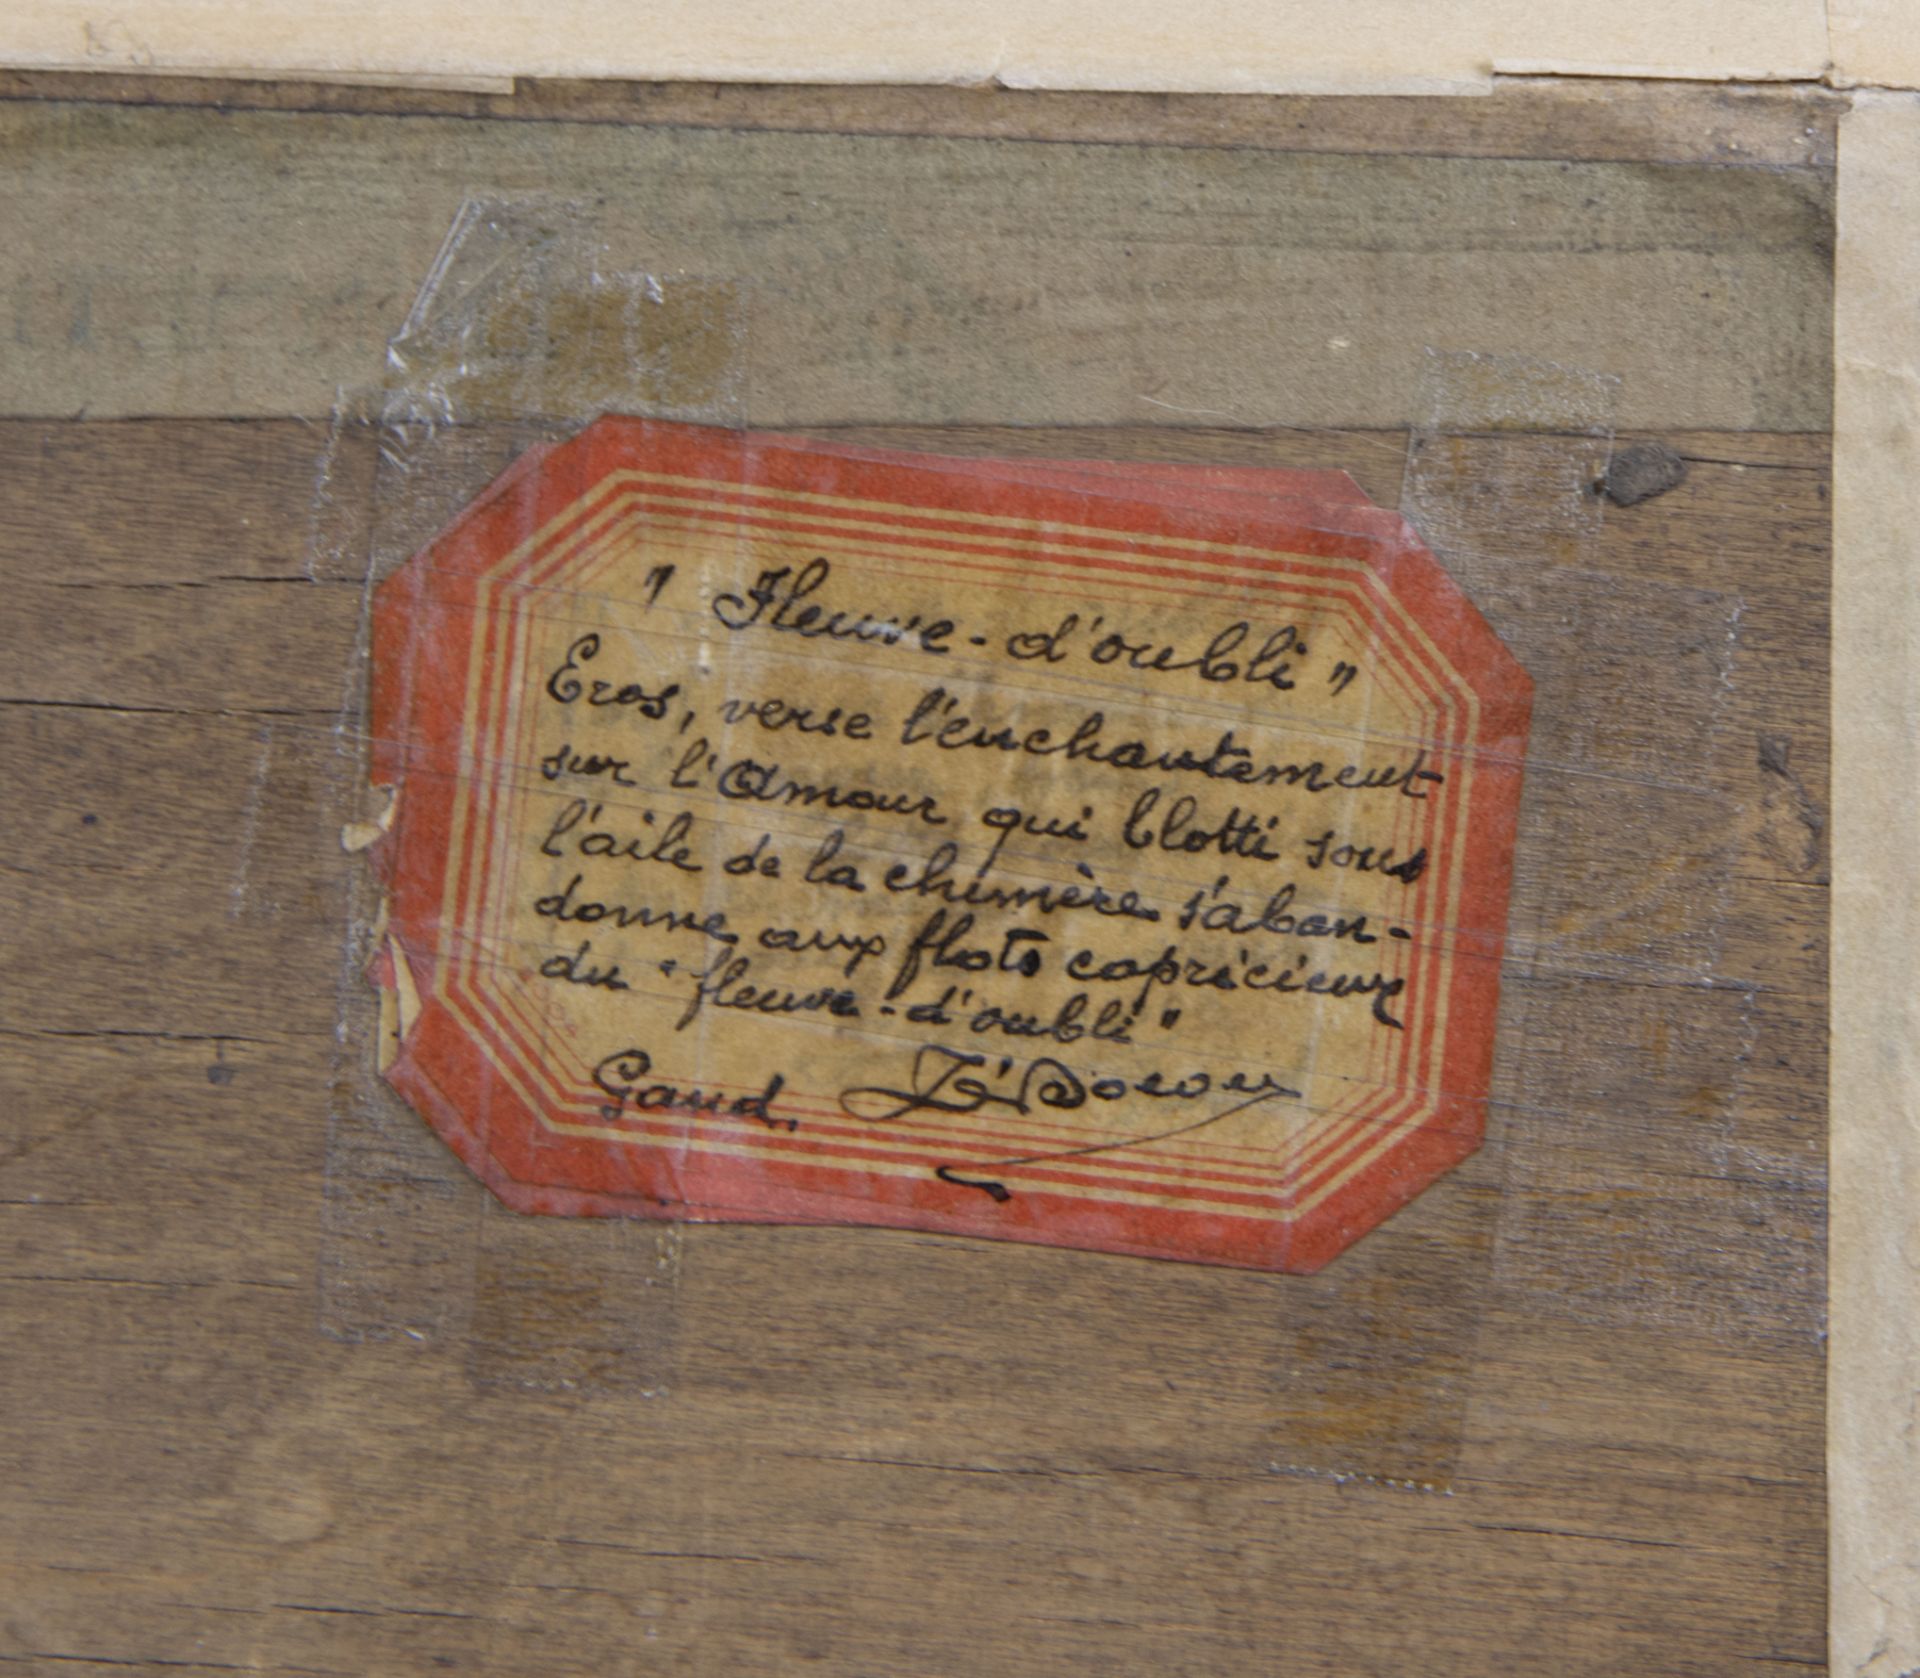 " Fleuve - d'oubli "
Eros, verse l'enchantement
sur l'Amour qui blotti sous
l'aile de la chimère s'aban-
donne aux flots capricieux
du "fleuve - d'oubli"
Gand.